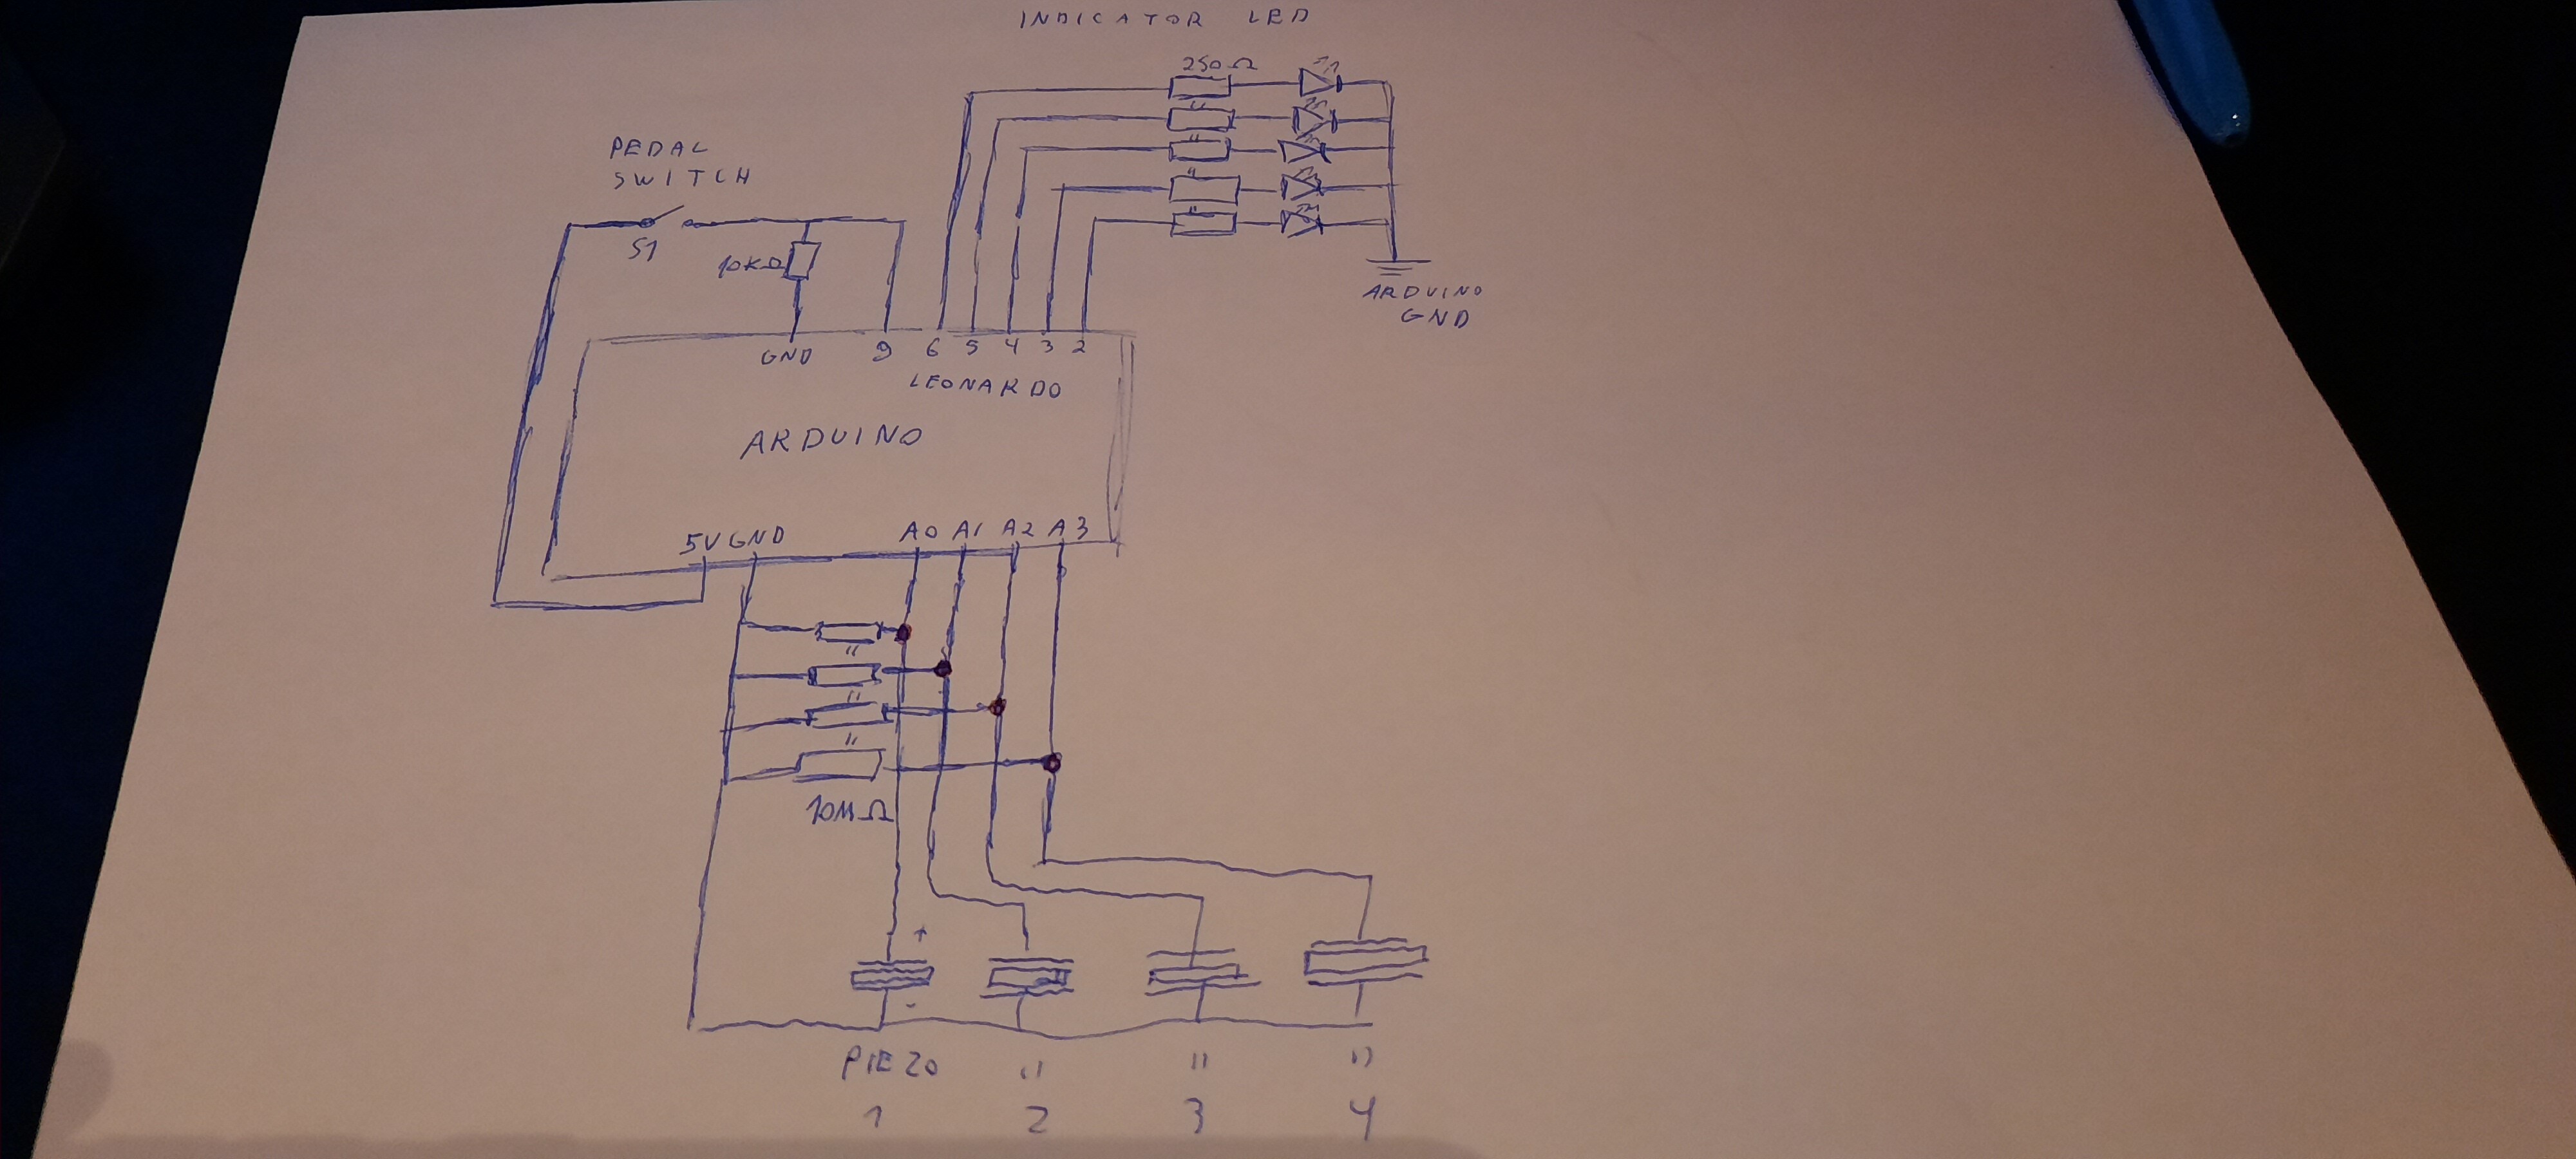 INDICATOR LED
250Ω
"
"
"
"
PEDAL
SWITCH
S1
10KΩ
ARDUINO
GND
GND 9 6 5 4 3 2
LEONARDO
ARDUINO
5V GND A0 A1 A2 A3
"
"
"
10MΩ
+
-
PIEZO " " "
1 2 3 4